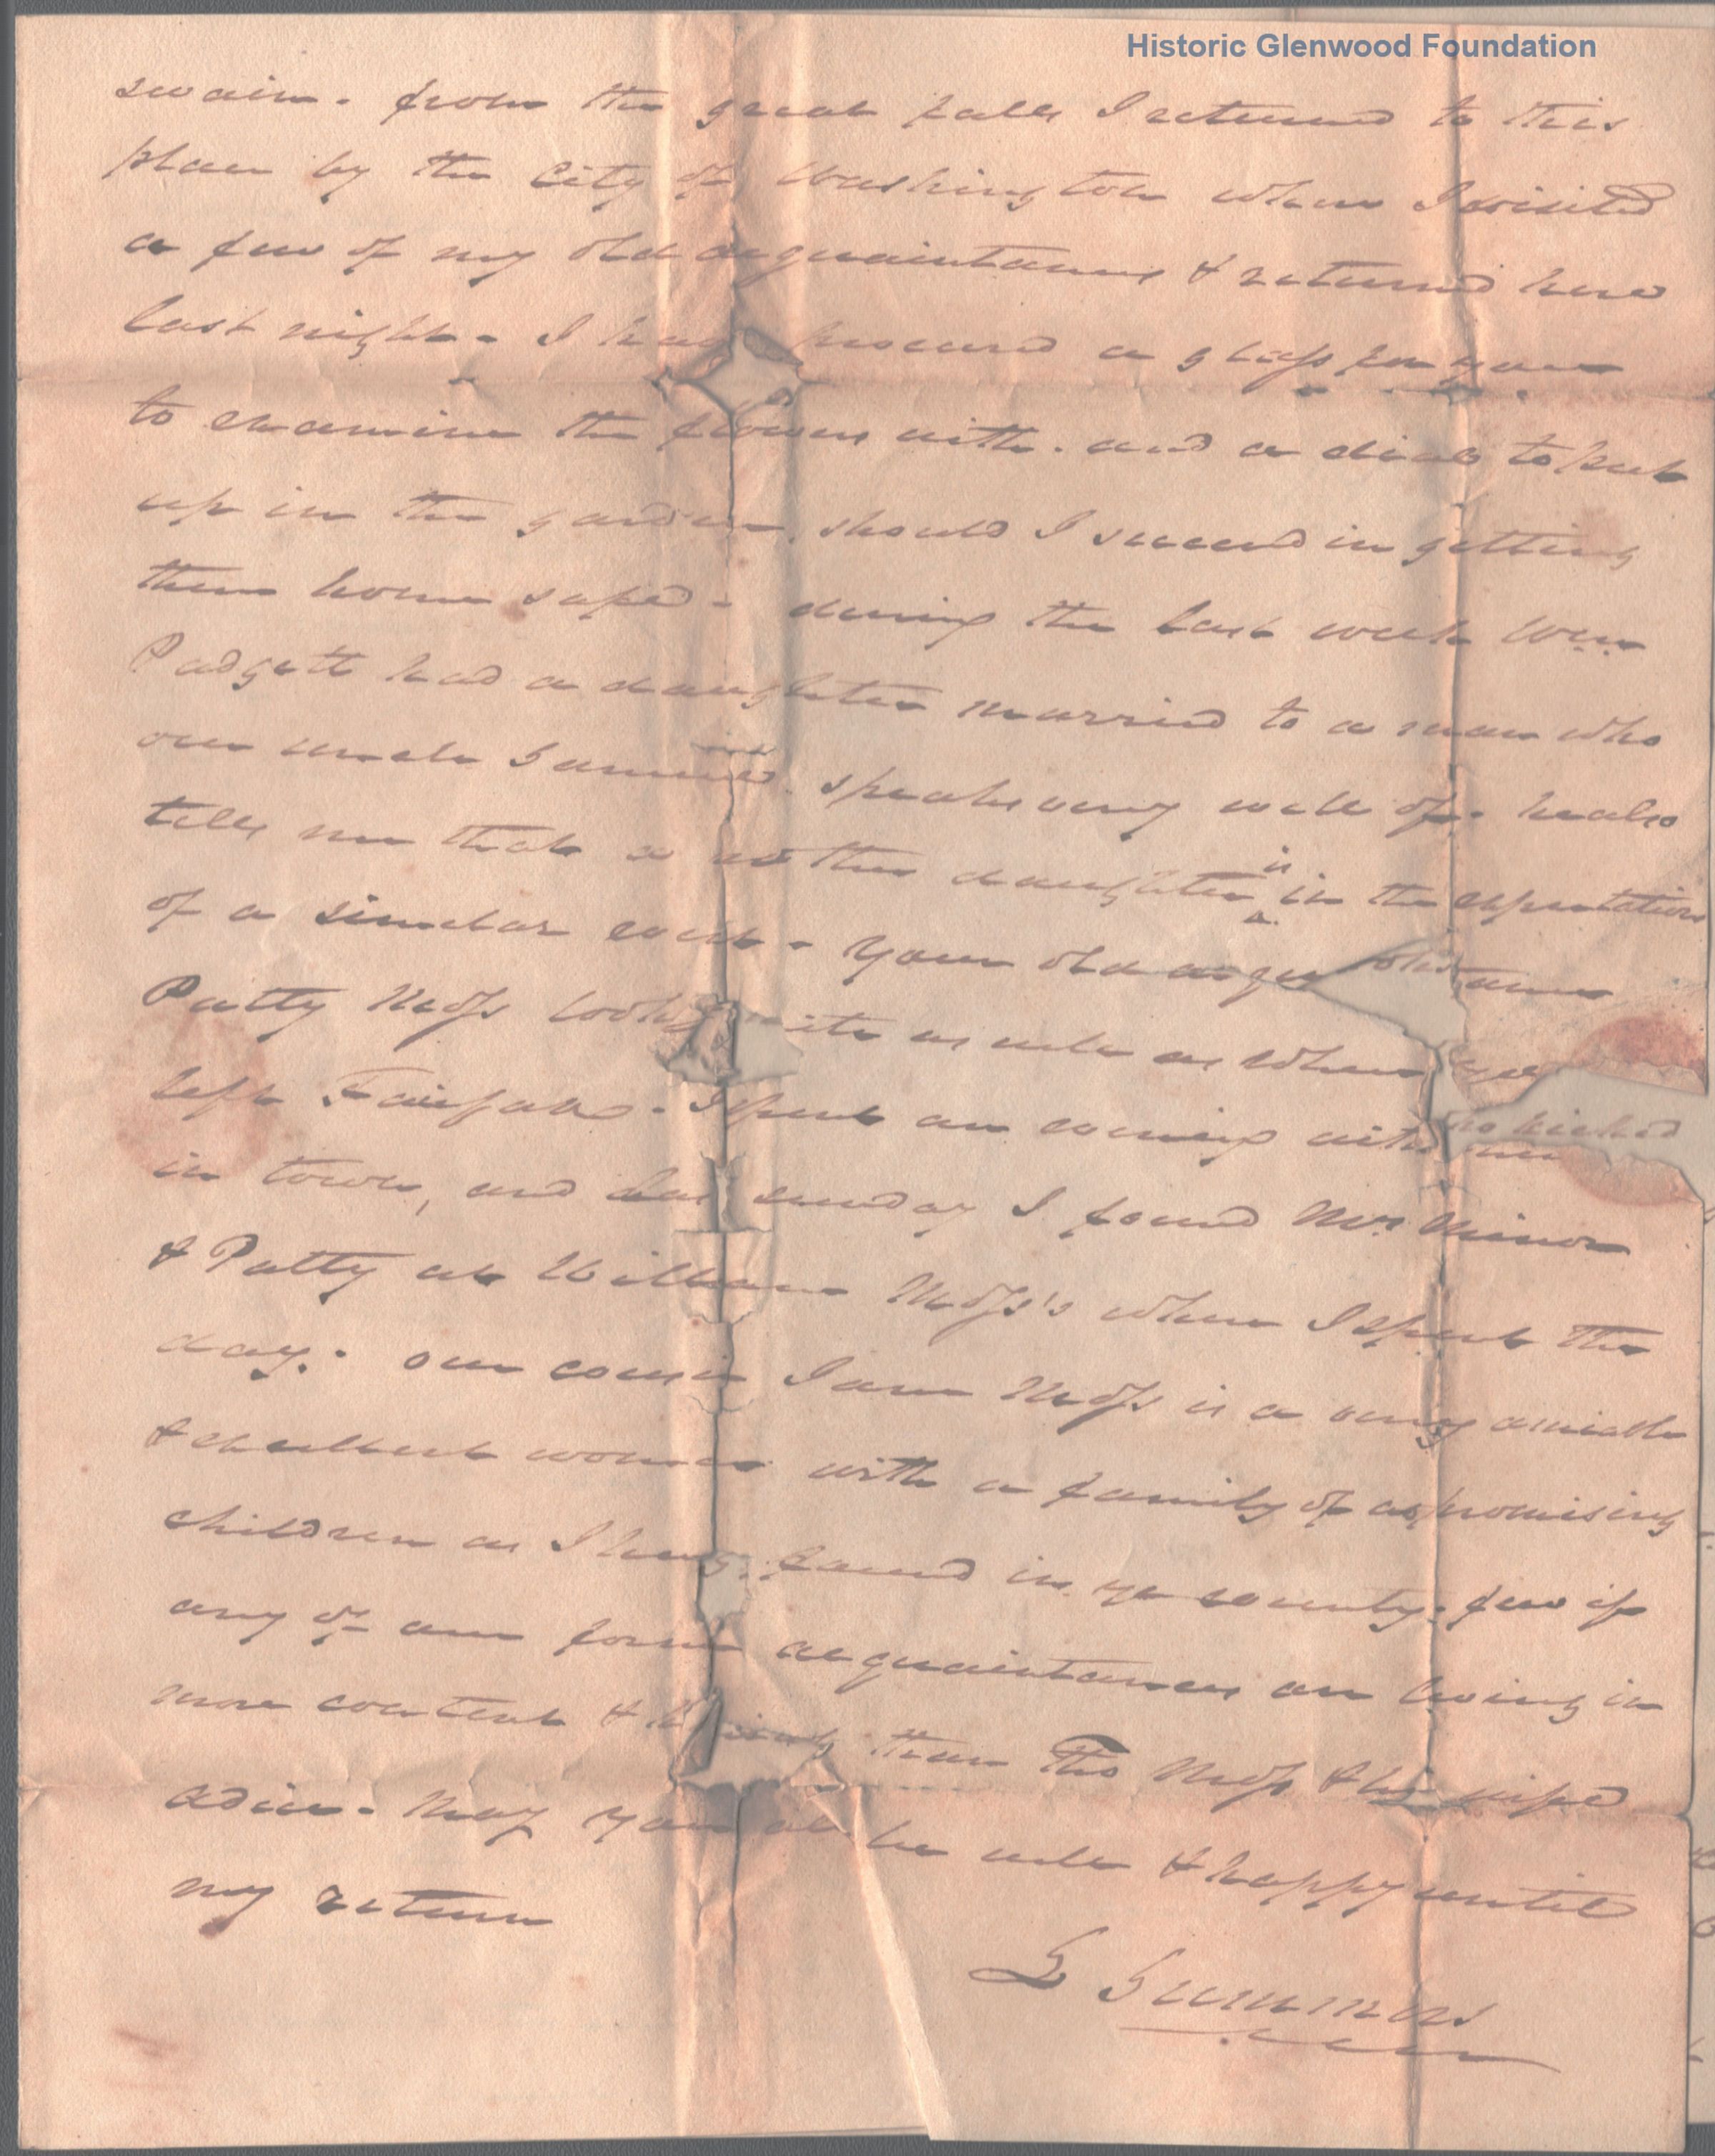 Historic Glenwood Foundation
swain. from the great falls I returned to this
place by the City of Washington where I visited
a few of my old acquaintance & returned here
last night. I have procured a glass for you
to examine the flowers with. and a dial to put
up in the garden, should I succeed in getting
them home safe - during the last week Wm.
Padgett had a daughter married to a man who
our uncle speaks very well of. he also
tells me that another daughter is in the expectation
of a similar event - your old acquaintance
Patty Moss looks quite as well as when you
left Fairfax - I spent an evening with
in town, and sunday I found Mrs. Minor
& Patty at William Moss's where I spent the
day. our cousin Jane Moss is a very amiable
& excellent woman with a family of as promising
children as I have found in ye county. few if
any of our acquaintances are living in
more content & than Tho Moss & his wife
adieu. May you all be well & happy until
my return
S Summers